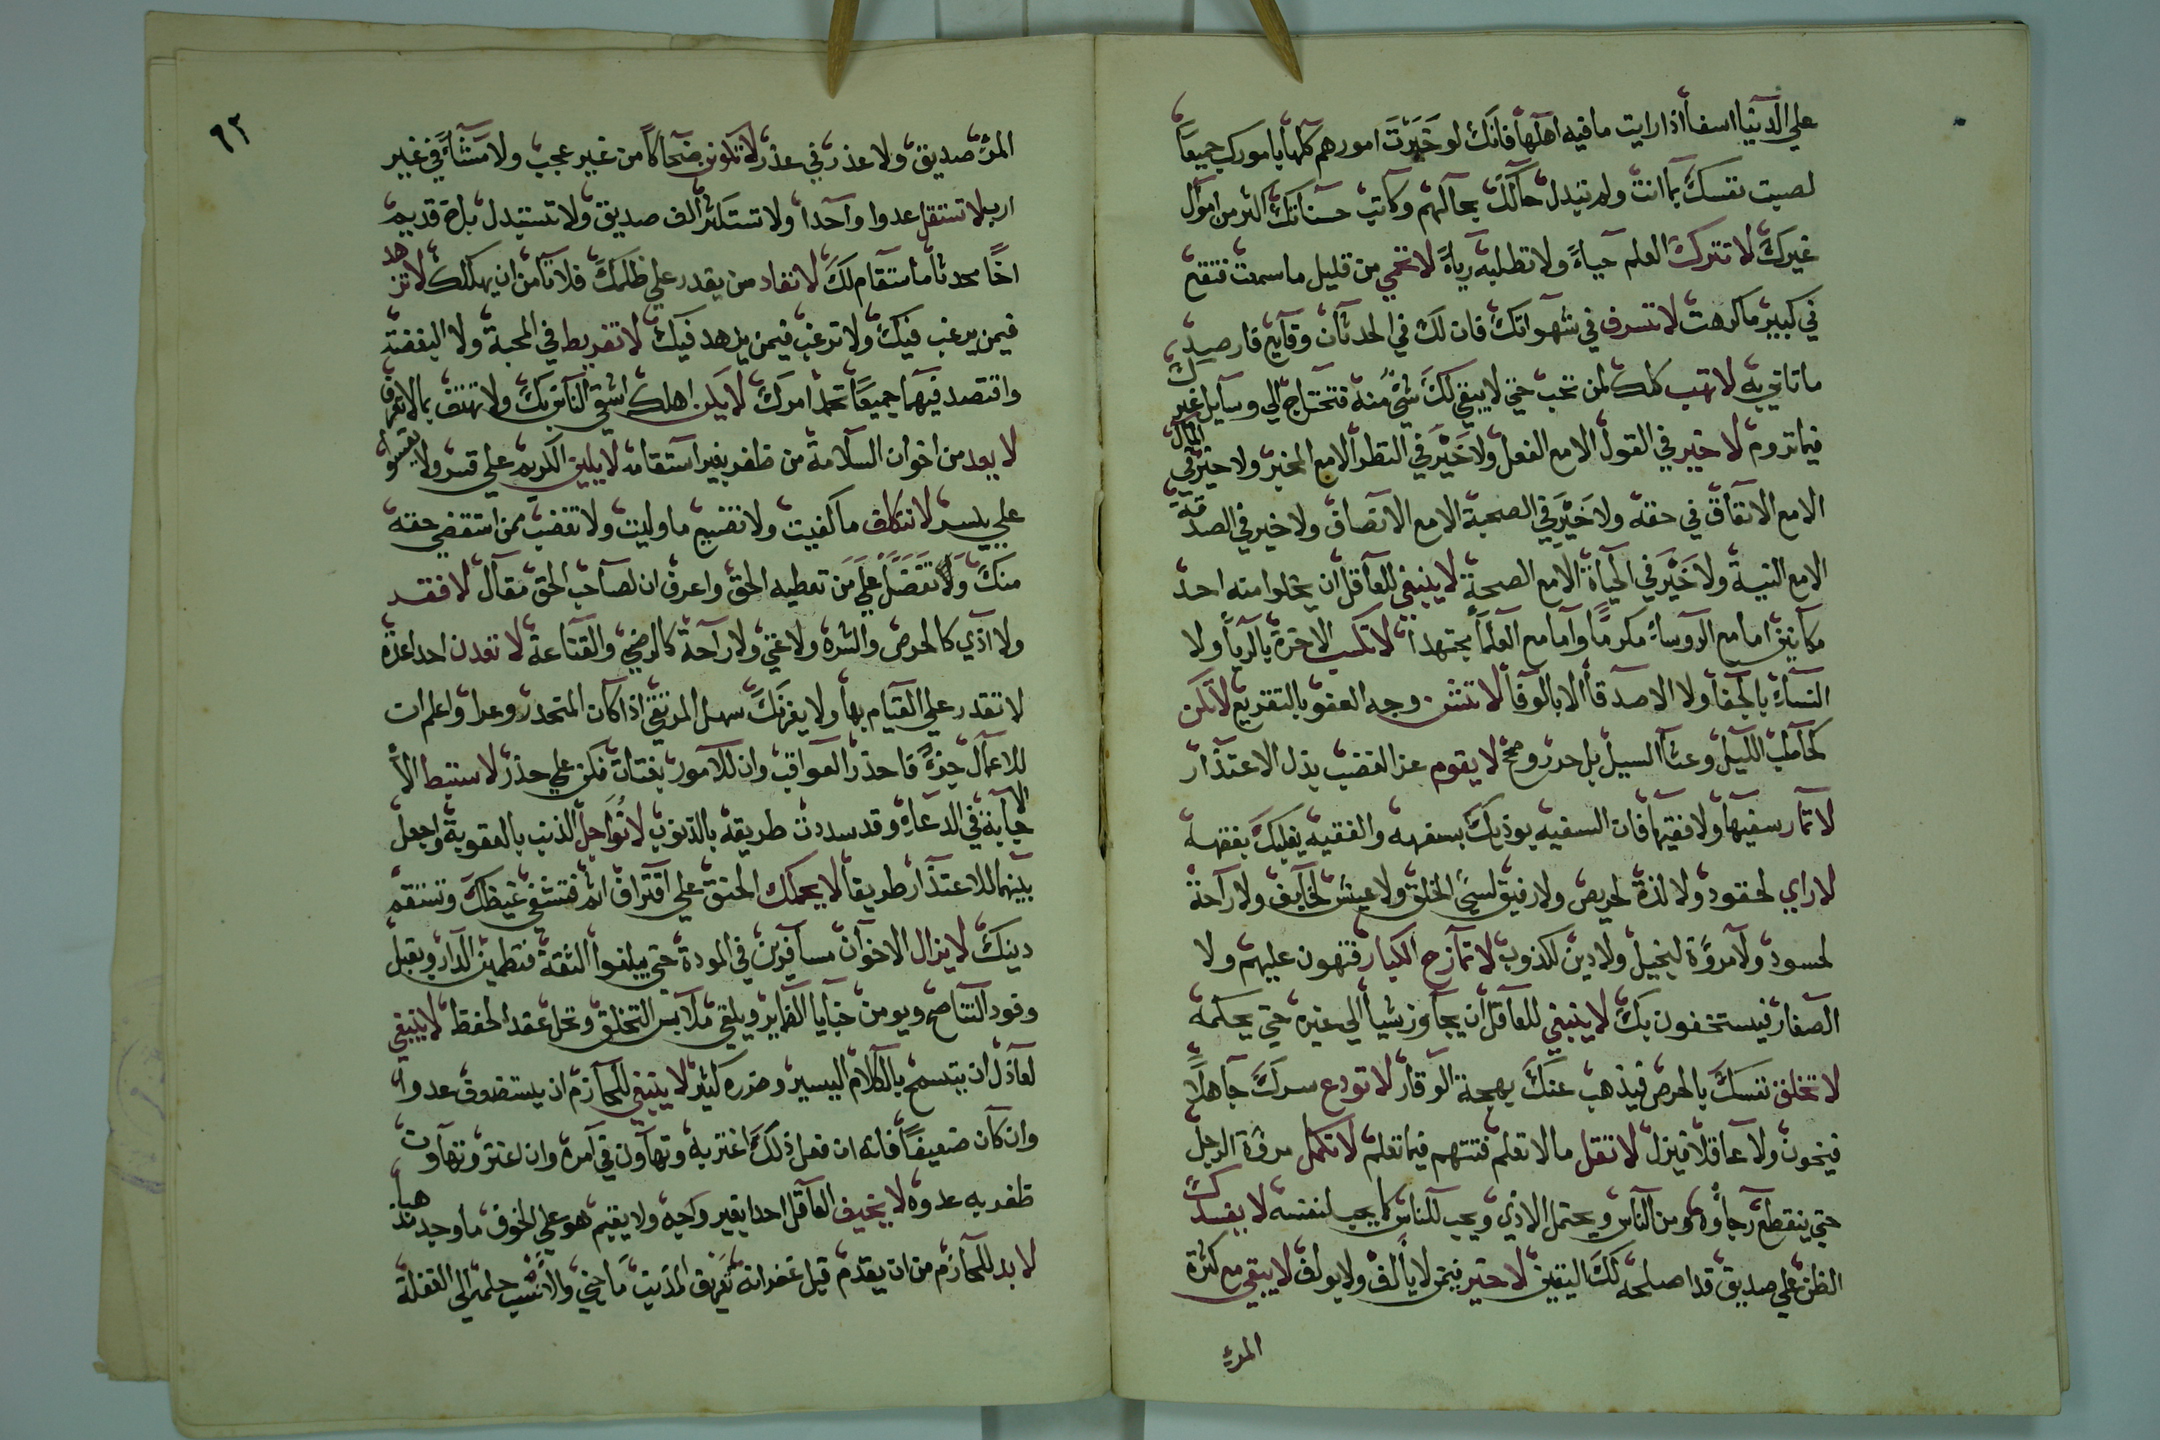 علي الدنيا اسفا اذا رايت ما فيه اهلها فانك لو خيرت امورهم كلها بامورك جميعا
لصيت نفسك بما انت ولم تبدل حالك بحالهم وكانت حسناتك اكثر من اموال
غيرك لا تترك العلم حياء ولا تطلبه رياء لا تحمي من قليل ما سمعت فتقع
في كبير ما كرهت لا تسرف في شهواتك فان لك في الحدثان وقايع فارصيد
ما تاتي به لا تهب كلك لمن تحب حتي لا يبقي لك شي منه فتحتاج الي وسايل غيرك
فيما تروم لا خير في القول الا مع الفعل ولا خير في النظر الا مع المخبر ولا خير في المال
الا مع الانفاق في حقه ولا خير في الصحبة الا مع الانصاف ولا خير في الصدقة
الا مع النية ولا خير في الحياة الا مع الصحة لا ينبغي للعاقل ان يخلوا منه احد
مكانين اما مع الروساء مكرما واما مع العلما مجتهدا لا تكسب الاخرة بالريا ولا
النساء بالجفا ولا الاصدقا الا بالوفا لا تشن وجه العفو بالتقريع لا تكن
كحاطب الليل وغثا السيل بل حرر وصح لا يقوم عز الغضب بذل الاعتذار
لا تمار سفيها ولا فقيها فان السفيه يوذيك بسفهه والفقيه يغلبك بفقهه
لا راي لحقود ولا لذة لحريص ولا رفيق لسيئ الخلق ولا عيش لخايف ولا راحة
لحسود ولا مروة لبخيل ولا دين لكذوب لا تمازح الكبار فتهون عليهم ولا
الصغار فيستخفون بك لا ينبغي للعاقل ان يجاوز شيأ الي غيره حتي يحكمه
لا تخلق نفسك بالحرص فيذهب عنك بهجة الوقار لا تودع سرك جاهلا
فيخون ولا عاقلا فيزل لا تقل ما لا تعلم فتتهم فيما تعلم لا تكمل مروة الرجل
حتي ينقطع رجاوه من الناس ويحتمل الاذي ويحب للناس كما يحب لنفسه لا يفسدك
الظن علي صديق قد اصلحه لك اليقين لا خير فيمن لا يألف ولا يولف لا يبقي مع كثرة
المرء
٩٢
المرء صديق ولا عذر في عذر لا تكونن ضحاكا من غير عجب ولا مشاء في غير
ارب لا تستقل عدوا واحدا ولا تستكثر الف صديق ولا تستبدل باخ قديم
اخا محدثا ما استقام لك لا تعاد من يقدر علي ظلمك فلا تامن ان يهلكك لا تزهد
فيمن يرغب فيك ولا ترغب فيمن يزهد فيك لا تفريط في المحبة ولا البغضة
واقتصد فيهما جميعا تحمد امرك لا يكن اهلك اشقي الناس بك ولا تهتف بما لا تعرف
لا يعد من اخوان السلامة من ظفر بغير استقامة لا يلين الكريم علي قسر ولا يقسوا
علي يسر لا تتكلف ما كفيت ولا تضيع ما وليت ولا تغضب ممن استقضي حقه
منك ولا تفضل علي من تعطيه الحق واعرف ان لصاحب الحق مقال لا فقد
ولا اذي كالحرص والشره ولا غني ولا راحة كالرضي والقناعة لا تعدن احدا عدة
لا تقدر علي القيام بها ولا يغرنك سهل المرتقي اذا كان المتحدر وعرا واعلم ان
للاعمال جزء فاحذر العواقب وان للامور بغتات فكن علي حذر لا ستبط الا
الاجابة في الدعاء وقد سددت طريقه بالذنوب لا تواجل الذنب بالعقوبة واجعل
بينهما للاعتذار طريقا لا يحملك الحنق علي اقتراف اثم فتشفي غيظك وتسقم
دينك لا يزال الاخوان مسافرين في المودة حتي يبلغوا الثقة فتطمين الدار ويقبل
وفود التناصح ويومن خبايا الضماير ويلقي ملابس التخلق وتحل عقد الحفظ لا ينبغي
لعاذل ان يتسمح بالكلام اليسير وضرره كثير لا ينبغي للحازم ان يستضعف عدوا
وان كان ضعيفا فانه ان فعل ذلك اغتر به وتهاون في امره وان اغتر وتهاون
ظفر به عدوه لا يخيف العاقل احدا بغير وجه ولا يقيم هو علي الخوف ما وجد مذهبا
لا بد للحازم من ان يقدم قبل غفرانه تعريف المذنب ما جني والا نسب حلمه الي الغفلة